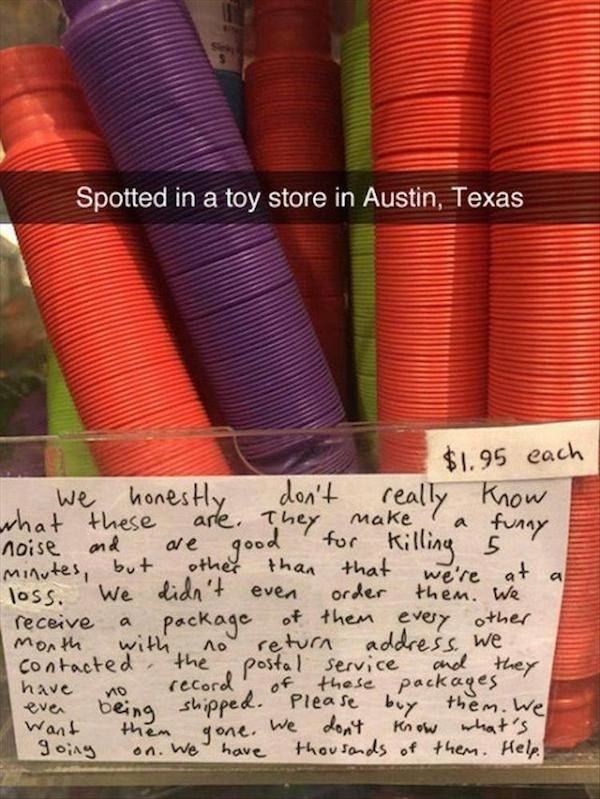 Slinky
Spotted in a toy store in Austin, Texas
$1.95 each
We honestly don't really know
what these are. They make a funny
noise and are good for killing 5
minutes, but other than that we're at a
loss. We didn't even order them. We
receive a package of them every other
month with no return address. We
contacted the postal service and they
have no record of these packages
ever being shipped. Please buy them. We
want them gone. We don't know what's
going on. We have thousands of them. Help.